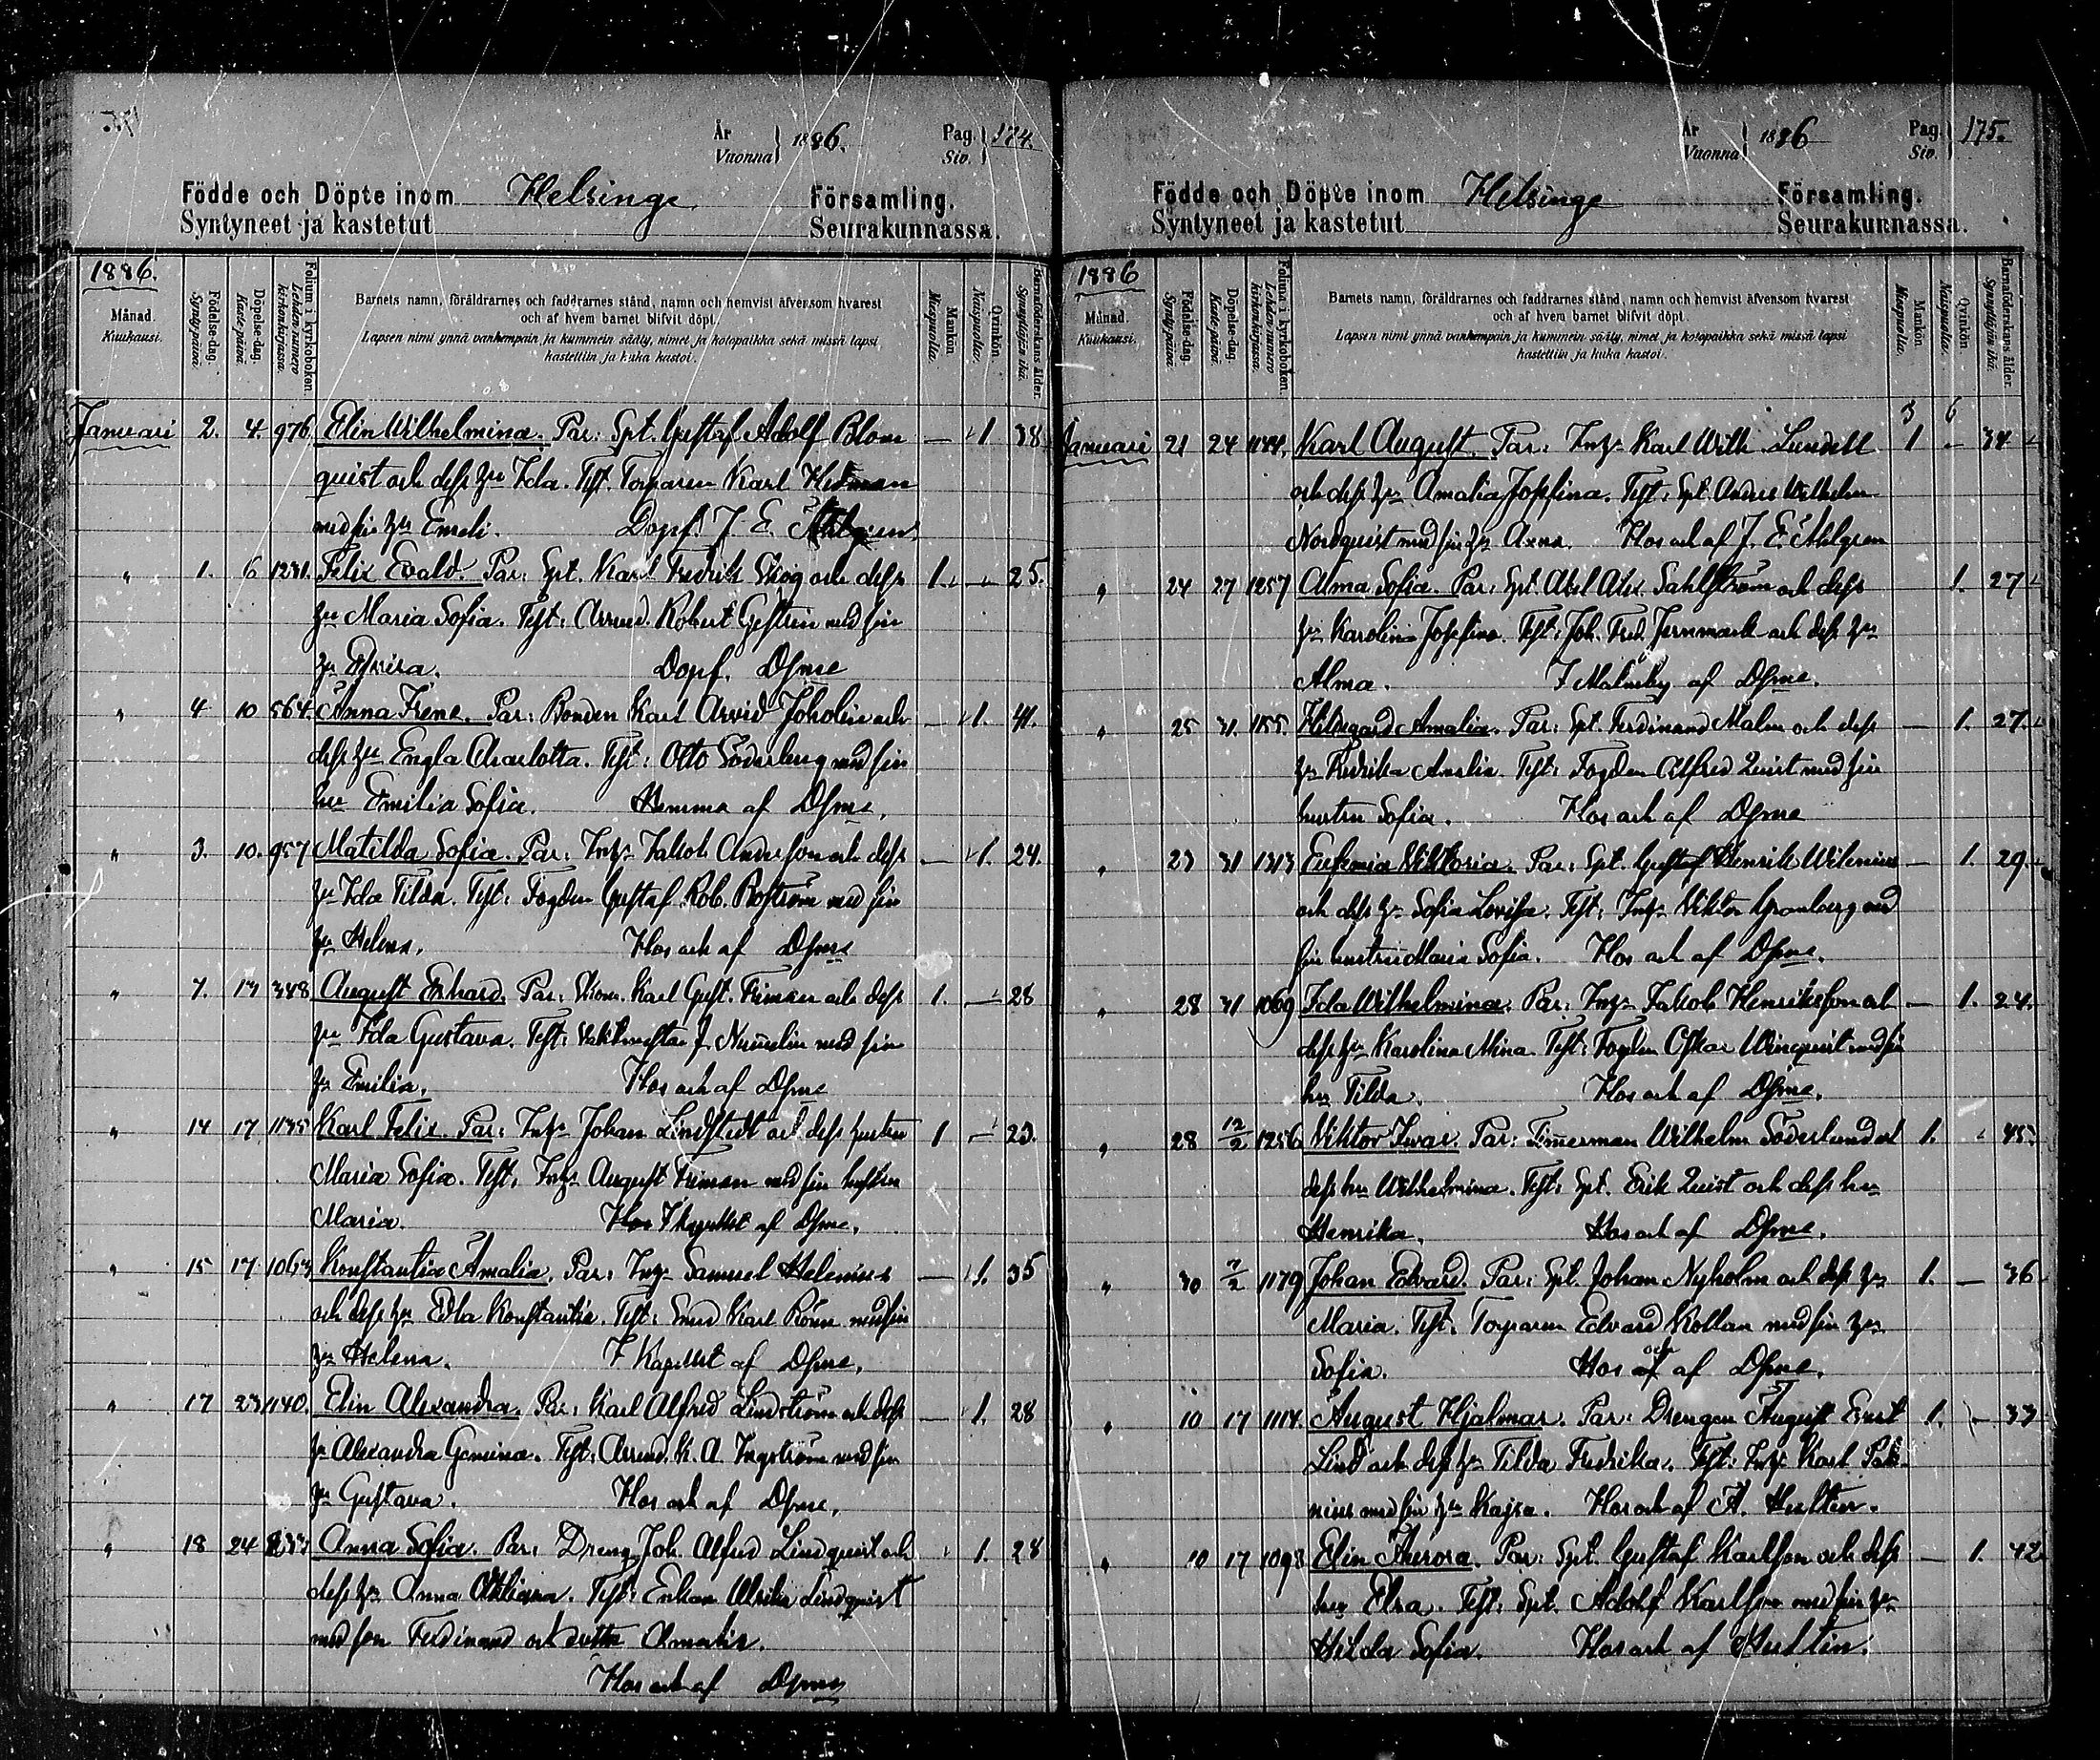 År
Vuonna 1886. Pag. Siv. 174.
Födde och Döpte inom Helsinge Församling.
Syntyneet ja kastetut Seurakunnassa.
1886.
Månad. Kuukausi.
Födelse-dag. Syntypäivä.
Döpelse-dag. Kastepäivä.
Folium i kyrkoboken. Lehden numero kirkonkirjassa.
Barnets namn, föräldrarnes och faddrarnes stånd, namn och hemvist äfvensom hvarest
och af hvem barnet blifvit döpt.
Lapsen nimi ynnä vanhempain ja kummein sääty, nimet ja kotopaikka sekä missä lapsi
kastettiin ja kuka kastoi.
Mankön. Miespuolia.
Qvinkön. Naispuolia.
Barnaföderskans ålder. Synnyttäjän ikä.
Januari 2. 4. 976 Elin Wilhelmina. Par: Spt. Gustaf Adolf Blom — 1. 38
quist och dess hu Ida. Test. Torparen Karl Hedman
med sin hu Emeli. Döpt. J. E. Ahlgren
" 1. 6 1231. Felix Evald. Par: Spt. Karl Fredrik Skog och dess 1. — 25.
hu Maria Sofia. Test: Arrend. Robert Gestrin med sin
hu Döpt. Dsme
" 4 10 564. Anna Irene. Par: Bonden Karl Arvid Joholin och — 1. 41.
dess hu Engla Charlotta. Test: Otto Söderberg med sin
hu Emilia Sofia. Hemma af Dsme.
" 3. 10. 957 Matilda Sofia. Par: Inhs Jakob Andersson och dess — 1. 24.
hu Ida Tilda. Test: Fogden Gustaf Rob. Boström med sin
hu Helena. Hos och af Dsme
" 7. 13 348 August Erhard. Par: Karl Gust. Friman och dess 1. — 28
hu Ida Gustava. Test: J. Numelin med sin
hu Emilia. Hos och af Dsme
" 14 17 1135 Karl Felix. Par: Inhs Johan Lindstedt och dess hustru 1 — 23.
Maria Sofia. Test. Inhs August Friman med sin hustru
Maria. I kapellet af Dsme.
" 15 17 1063 Konstantia Amalia. Par: Inhs Samuel Helenius — 1. 35
och dess hu Edla Konstantia. Test: Smed Karl Rönn med sin
hu Helena. I Kapellet af Dsme.
" 17 23 1140. Elin Alexandra. Par: Karl Alfred Lindström och dess — 1. 28
hu Alexandra Gemina. Test: Arrend. K. A. Ingström med sin
hu Gustava. Hos och af Dsme.
" 18 24 Anna Sofia. Par: Dreng Joh. Alfred Lindquist och 1. 28
dess hu Anna. Test: Enkan Ulrika Lindquist
med son Ferdinand och dotter Amanda.
Hos och af Dsme
År
Vuonna 1886 Pag. Siv. 175.
Födde och Döpte inom Helsinge Församling.
Syntyneet ja kastetut Seurakunnassa.
1886
Månad. Kuukausi.
Födelse-dag. Syntypäivä.
Döpelse-dag. Kastepäivä.
Folium i kyrkoboken. Lehden numero kirkonkirjassa.
Barnets namn, föräldrarnes och faddrarnes stånd, namn och hemvist äfvensom hvarest
och af hvem barnet blifvit döpt.
Lapsen nimi ynnä vanhempain ja kummein sääty, nimet ja kotopaikka sekä missä lapsi
kastettiin ja kuka kastoi.
Mankön. Miespuolia.
Qvinkön. Naispuolia.
Barnaföderskans ålder. Synnyttäjän ikä.
3 6
Januari 21 24 1144. Karl August. Par: Inhs Karl Wilh. Lundell 1 — 34
och dess hu Amalia Josefina. Test: Spt. Anders Wilhelm
Nordquist med sin hu Anna. Hos och af J. E. Ahlgren
" 24 27 1257 Alma Sofia. Par: Spt. Axel Alex. Sahlström och dess 1. 27
hu Karolina Josefina. Test: Joh. Fred. Jernmark och dess hu
Alma. I Malmby af Dsme.
" 25 31. 1155. Hildegard Amalia. Par: Spt. Ferdinand Malm och dess — 1. 27.
hu Fredrika Amalia. Test: Fogden Alfred Quist med sin
hustru Sofia. Hos och af Dsme
" 23 31 1313 Eufemia Viktoria. Par: Spt. Gustaf Henrik Wilenius — 1. 29.
och dess hu Sofia Lovisa. Test: Inhs Viktor Granberg med
sin hustru Maria Sofia. Hos och af Dsme.
" 28 31 1069 Ida Wilhelmina. Par: Inhs Jakob Henriksson och — 1. 24.
dess hu Karolina Mina. Test: Fogden Oskar Winquist med sin
hu Tilda. Hos och af Dsme.
" 28 12/2 1256 Viktor Ivar. Par: Timmerman Wilhelm Söderlund och 1. 45.
dess hu Wilhelmina. Test: Spt. Erik Quist och dess hu
Henrika. Hos och af Dsme.
" 30 7/2 1179 Johan Edvard. Par: Spt. Johan Nyholm och dess hu 1. — 36
Maria. Test. Torparen Edvard Kollan med sin hu
Sofia. Hos och af Dsme.
" 10 17 1114. August Hjalmar. Par: Drengen August Ernst 1. — 33
Lind och dess hu Tilda Fredrika. Test: Inhs Karl
nius med sin hu Kajsa. Hos och af A. Hultin.
" 10 17 1098 Elin Aurora. Par: Spt. Gustaf Karlsson och dess — 1. 42
hu Elsa. Test: Spt. Adolf Karlsson med sin hu
Hilda Sofia. Hos och af Hultin.